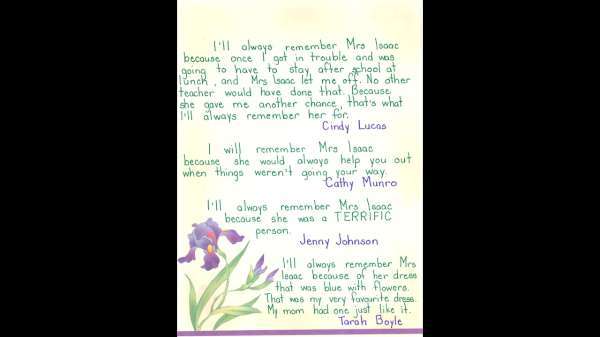 I'll always remember Mrs Isaac
because once I got in trouble and was
going to have to stay after school at
lunch, and Mrs Isaac let me off. No other
teacher would have done that. Because
she gave me another chance, that's what
I'll always remember her for.
Cindy Lucas
I will remember Mrs Isaac
because she would always help you out
when things weren't going your way.
Cathy Munro
I'll always remember Mrs Isaac
because she was a TERRIFIC
person.
Jenny Johnson
I'll always remember Mrs
Isaac because of her dress
that was blue with flowers.
That was my very favourite dress.
My mom had one just like it.
Tarah Boyle